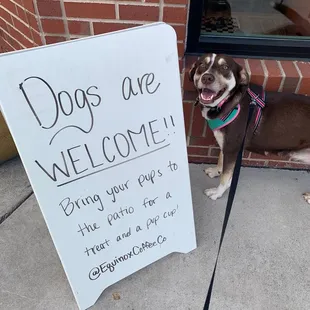 Dogs are
WELCOME!!
Bring your pups to
the patio for a
treat and a pup cup!
@EquinoxCoffee.Co